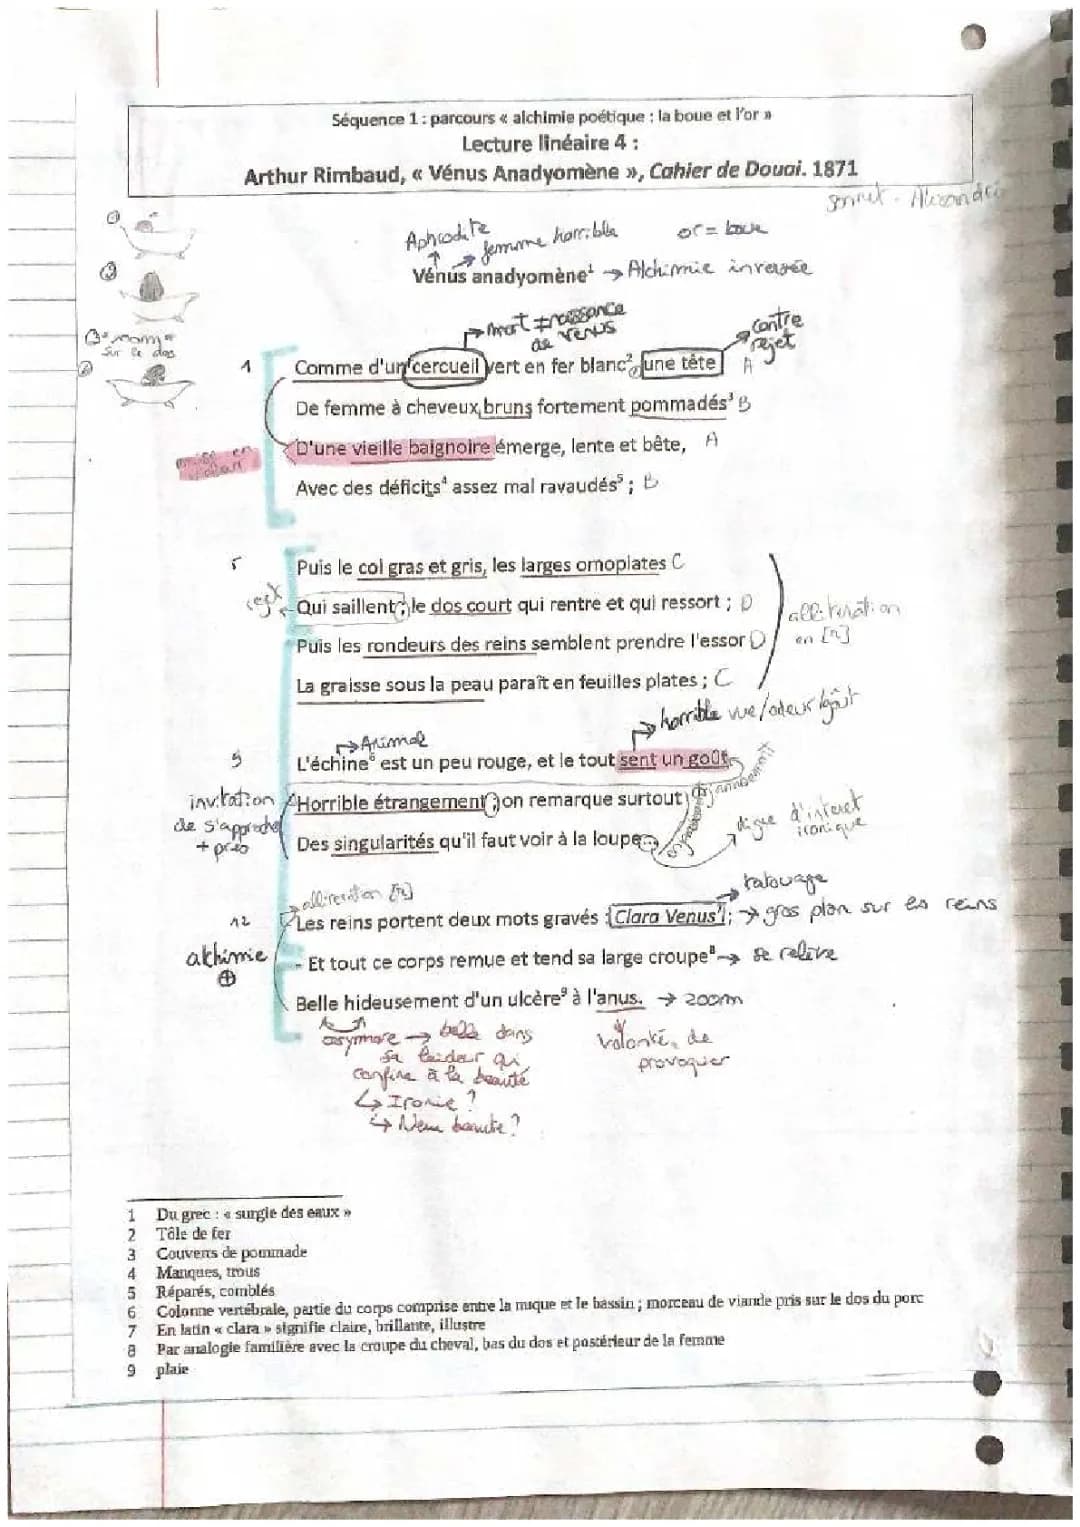 Séquence 1 : parcours « alchimie poétique : la boue et l'or »
Lecture linéaire 4 :
Arthur Rimbaud, « Vénus Anadyomène », Cahier de Douai. 1871
sonnet - Alexandrin
Aphrodite
femme horrible
or = boue
Vénus anadyomène¹ → Alchimie inversée
→ mort ≠ naissance
de Vénus
contre
rejet
sur le dos
1 Comme d'un cercueil vert en fer blanc², une tête A
De femme à cheveux bruns fortement pommadés³ B
D'une vieille baignoire émerge, lente et bête, A
Avec des déficits⁴ assez mal ravaudés⁵ ; B
5 Puis le col gras et gris, les larges omoplates C
rejet
Qui saillent ; le dos court qui rentre et qui ressort ; D
allitération
en [r]
Puis les rondeurs des reins semblent prendre l'essor D
La graisse sous la peau paraît en feuilles plates ; C
→ horrible vue/odeur/goût
→ Animal
9 L'échine⁶ est un peu rouge, et le tout sent un goût
enjambement
invitation
de s'approcher
+ près
Horrible étrangement ; on remarque surtout
enjambement
Des singularités qu'il faut voir à la loupe...
digne d'interet
ironique
allitération [r]
→ tatouage
12 Les reins portent deux mots gravés : Clara Venus⁷ ; → gros plan sur les reins
alchimie
+
- Et tout ce corps remue et tend sa large croupe⁸ → se relève
Belle hideusement d'un ulcère⁹ à l'anus. → zoom
oxymore → belle dans
sa laideur qui
confine à la beauté
↳ Ironie ?
↳ New beauté ?
volonté de
provoquer
1 Du grec : « surgie des eaux »
2 Tôle de fer
3 Couverts de pommade
4 Manques, trous
5 Réparés, comblés
6 Colonne vertébrale, partie du corps comprise entre la nuque et le bassin ; morceau de viande pris sur le dos du porc
7 En latin « clara » signifie claire, brillante, illustre
8 Par analogie familière avec la croupe du cheval, bas du dos et postérieur de la femme
9 plaie